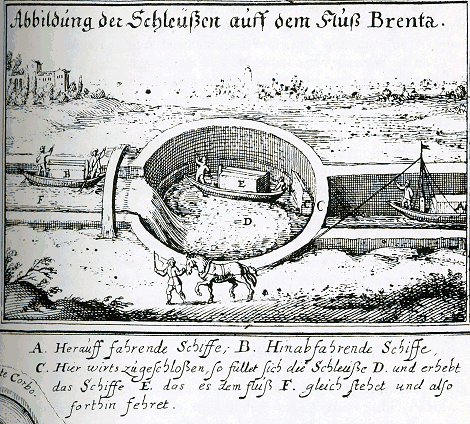 Abbildung der Schleüßen auff dem Fluß Brenta.
B
E
A
F
D
C
A. Herauff fahrende Schiffe, B. Hinabfahrende Schiffe,
C. Hier wirts zugeschloßen, so füllet sich die Schleüße D. und erhebt
das Schiffe E. das es dem fluß F. gleich stehet und also
forthin fehret.
te Corbo.